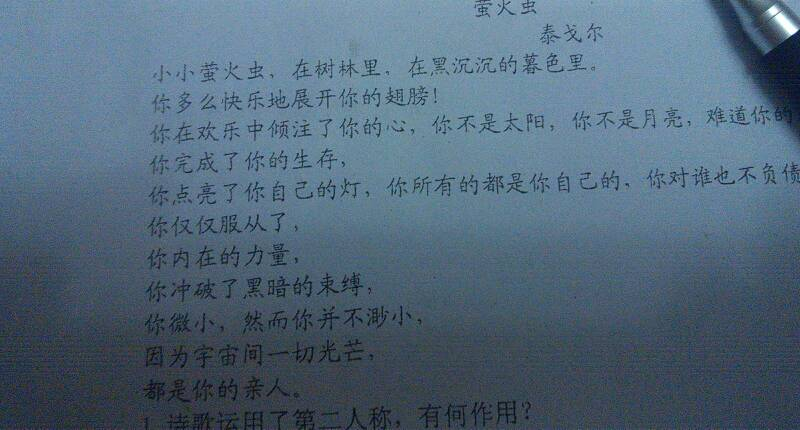 萤火虫
泰戈尔
小小萤火虫，在树林里，在黑沉沉的暮色里。
你多么快乐地展开你的翅膀！
你在欢乐中倾注了你的心，你不是太阳，你不是月亮，难道你的
你完成了你的生存，
你点亮了你自己的灯，你所有的都是你自己的，你对谁也不负债
你仅仅服从了，
你内在的力量，
你冲破了黑暗的束缚，
你微小，然而你并不渺小，
因为宇宙间一切光芒，
都是你的亲人。
1 诗歌运用了第二人称，有何作用？